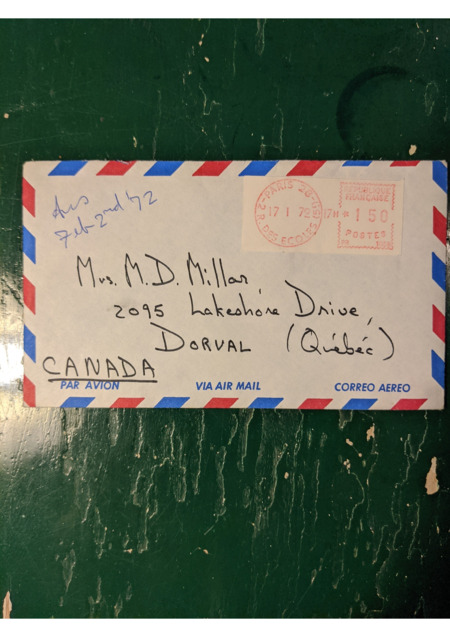 Ans
Feb 2nd 72
PARIS 28
17 1 72 17H
R. DES ECOLES
REPUBLIQUE
FRANCAISE
150
POSTES
Mrs. M.D. Millar,
2095 Lakeshore Drive,
DORVAL (Québéc)
CANADA
PAR AVION VIA AIR MAIL CORREO AEREO